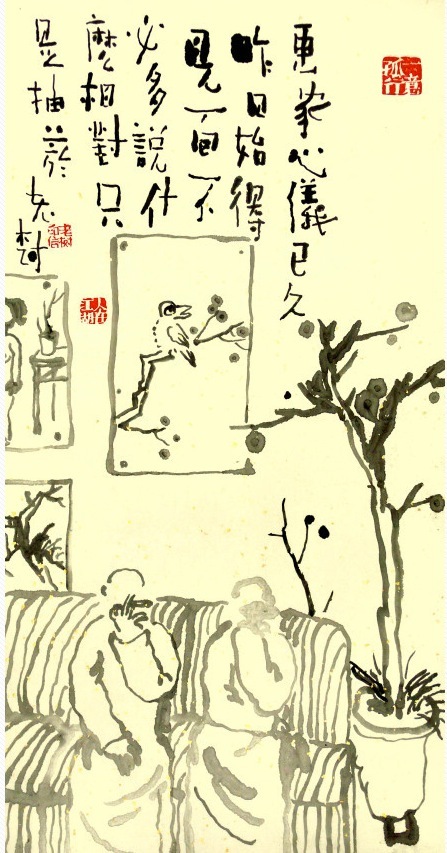 心儀已久
昨日始得
見一面不
必多說什
麼相對只
是抽菸 老树
一意孤行
人在江湖